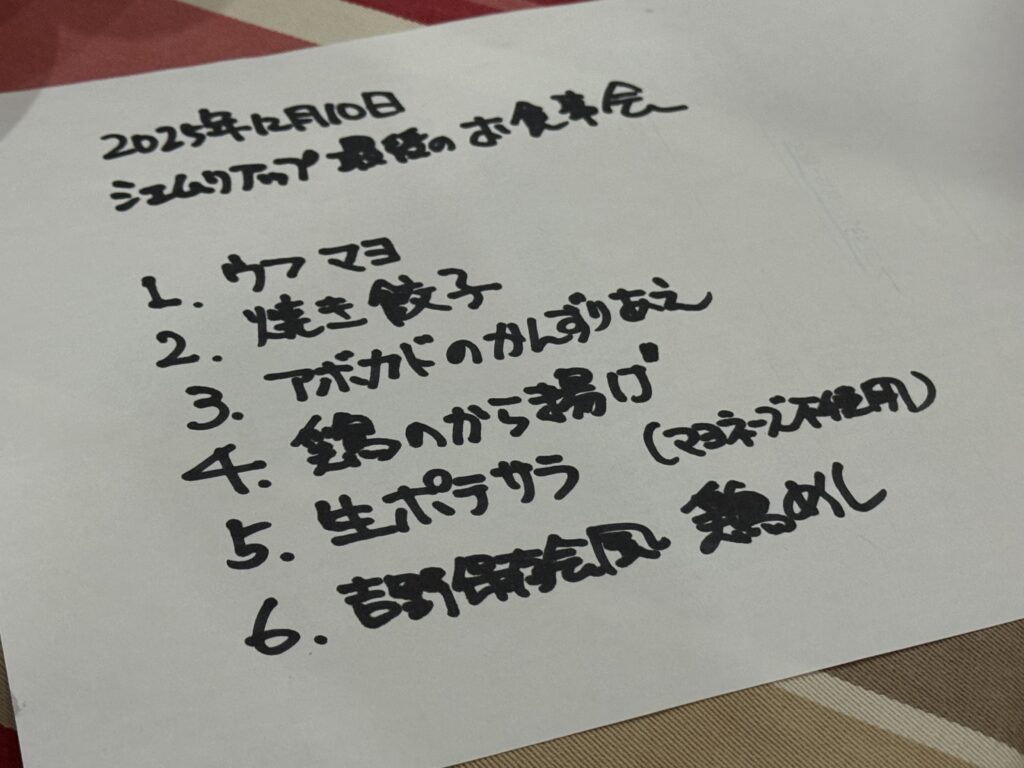 2025年12月10日
シェムリアップ 最後の お食事会
1. ウフ マヨ
2. 焼き餃子
3. アボカドのかんずりあえ
4. 鶏のから揚げ
5. 生ポテサラ (マヨネーズ不使用)
6. 吉野保存会風 鶏めし